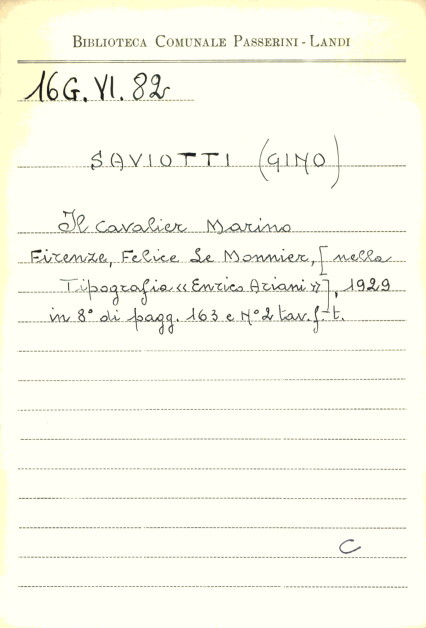 BIBLIOTECA COMUNALE PASSERINI - LANDI
16G. VI. 82
SAVIOTTI (GINO)
Il Cavalier Marino
Firenze, Felice Le Monnier, [nella
Tipografia «Enrico Ariani»], 1929
in 8° di pagg. 163 e N° 2 tav. f.-t.
C